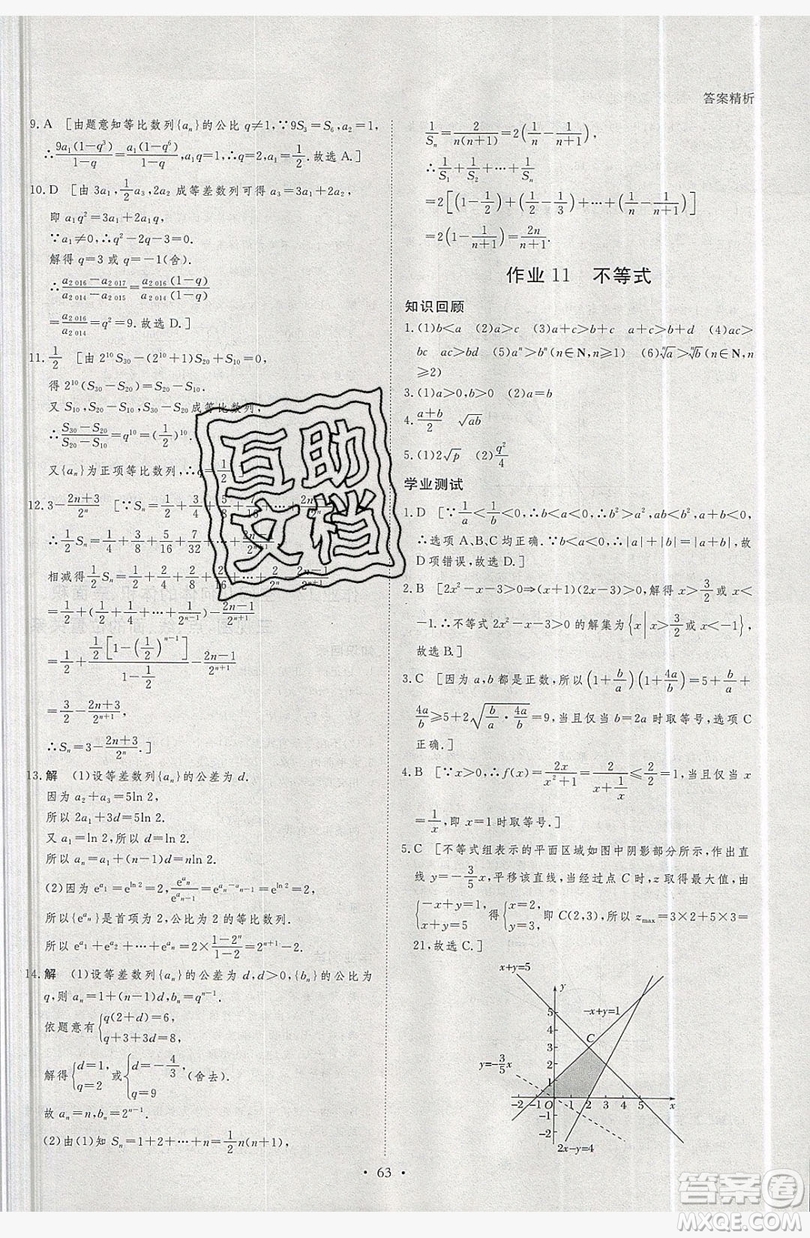 答案精析
9. A [由题意知等比数列{aₙ}的公比 q≠1,∵9S₃=S₆,
∴9a₁(1-q³)/(1-q)=a₁(1-q⁶)/(1-q).故选 A.]
10. D [由 3a₁,1/2 a₃,2a₂ 成等差数列可得 a₃=3a₁+2a₂,
即 a₁q²=3a₁+2a₁q,
∵a₁≠0,∴q²-2q-3=0.
解得 q=3 或 q=-1(舍).
=9.故选 D.]
11. 1/2 [由 2¹⁰S₃₀-(2¹⁰+1)S₂₀+S₁₀=0,
得 2¹⁰(S₃₀-S₂₀)=S₂₀-S₁₀.
又 S₁₀,S₂₀-S₁₀,S₃₀-S₂₀ 成等比数列,
∴(S₃₀-S₂₀)/(S₂₀-S₁₀)=q¹⁰=(1/2)
又{aₙ}为正项等比数列,∴q=1/2
12. 3-(2n+3)/2ⁿ [∵Sₙ=1/2+3/4+5/8+
∴1/2 Sₙ=1/4+3/8+5/16+7/32+
相减得 1/2 Sₙ=1/2+2/4+2/8+
=1/2+(1/2+1/4+1/8+…+1/2ⁿ⁻¹)-(2n-1)/2ⁿ⁺¹
=1/2+1/2[1-(1/2)ⁿ⁻¹]/(1-1/2)-(2n-1)/2ⁿ⁺¹
=3/2-(2n+3)/2ⁿ⁺¹,
∴Sₙ=3-(2n+3)/2ⁿ.]
13. 解 (1)设等差数列{aₙ}的公差为 d.
因为 a₂+a₃=5ln 2,
所以 2a₁+3d=5ln 2,
又 a₁=ln 2,所以 d=ln 2.
所以 aₙ=a₁+(n-1)d=nln 2.
所以{e^aₙ}是首项为 2,公比为 2 的等比数列.
所以 e^a₁+e^a₂+…+e^aₙ=2×(1-2ⁿ)/(1-2)=2ⁿ⁺¹-2.
14. 解 (1)设等差数列{aₙ}的公差为 d,d>0,{bₙ}的公比为
q,则 aₙ=1+(n-1)d,bₙ=qⁿ⁻¹.
依题意有{q(2+d)=6,q+3+3d=8,
解得{d=1,q=2 或{d=-4/3,q=9 (舍去).
故 aₙ=n,bₙ=2ⁿ⁻¹.
(2)由(1)知 Sₙ=1+2+…+n=1/2 n(n+1),
1/Sₙ=2/(n(n+1))=2(1/n-1/(n+1)),
∴1/S₁+1/S₂+…+1/Sₙ
=2[(1-1/2)+(1/2-1/3)+…+(1/n-1/(n+1))]
=2(1-1/(n+1))=2n/(n+1).
作业 11 不等式
知识回顾
1. (1)b<a (2)a>c (3)a+c>b+c a+c>b+d (4)ac>
bc ac>bd (5)aⁿ>bⁿ(n∈N,n≥2) (6)ⁿ√a>ⁿ√b(n∈N,n
≥2)
3. (1)a>0,b>0 (2)a=b
4. (a+b)/2 √ab
5. (1)2√p (2)q²/4
学业测试
1. D [∵1/a<1/b<0,∴b<a<0,∴b²>a²,ab<b²,a+b<0,
∴选项 A、B、C 均正确.∵b<a<0,∴|a|+|b|=|a+b|,故
D 项错误,故选 D.]
2. B [2x²-x-3>0⇒(x+1)(2x-3)>0,解得 x>3/2 或 x<
-1.∴不等式 2x²-x-3>0 的解集为{x|x>3/2 或 x<-1}.
故选 B.]
3. C [因为 a,b 都是正数,所以(1+b/a)(1+4a/b)=5+b/a+
4a/b≥5+2√(b/a·4a/b)=9,当且仅当 b=2a 时取等号,选项 C
正确.]
4. B [∵x>0,∴f(x)=2x/(x²+1)=2/(x+1/x)≤2/2=1,当且仅当 x
=1/x,即 x=1 时取等号.]
5. C [不等式组表示的平面区域如图中阴影部分所示,作出直
线 y=-3/5 x,平移该直线,当经过点 C 时,z 取得最大值,由
{-x+y=1,x+y=5 得{x=2,y=3, 即 C(2,3),所以 zₘₐₓ=3×2+5×3=
21,故选 C.]
x+y=5
y
-x+y=1
C
y=-3/5 x
5
4
3
2
1
-2 -1 O 1 2 3 4 5 x
-1
-2
2x-y=4
• 63 •
互助
文档
答案圈
MXQE.COM